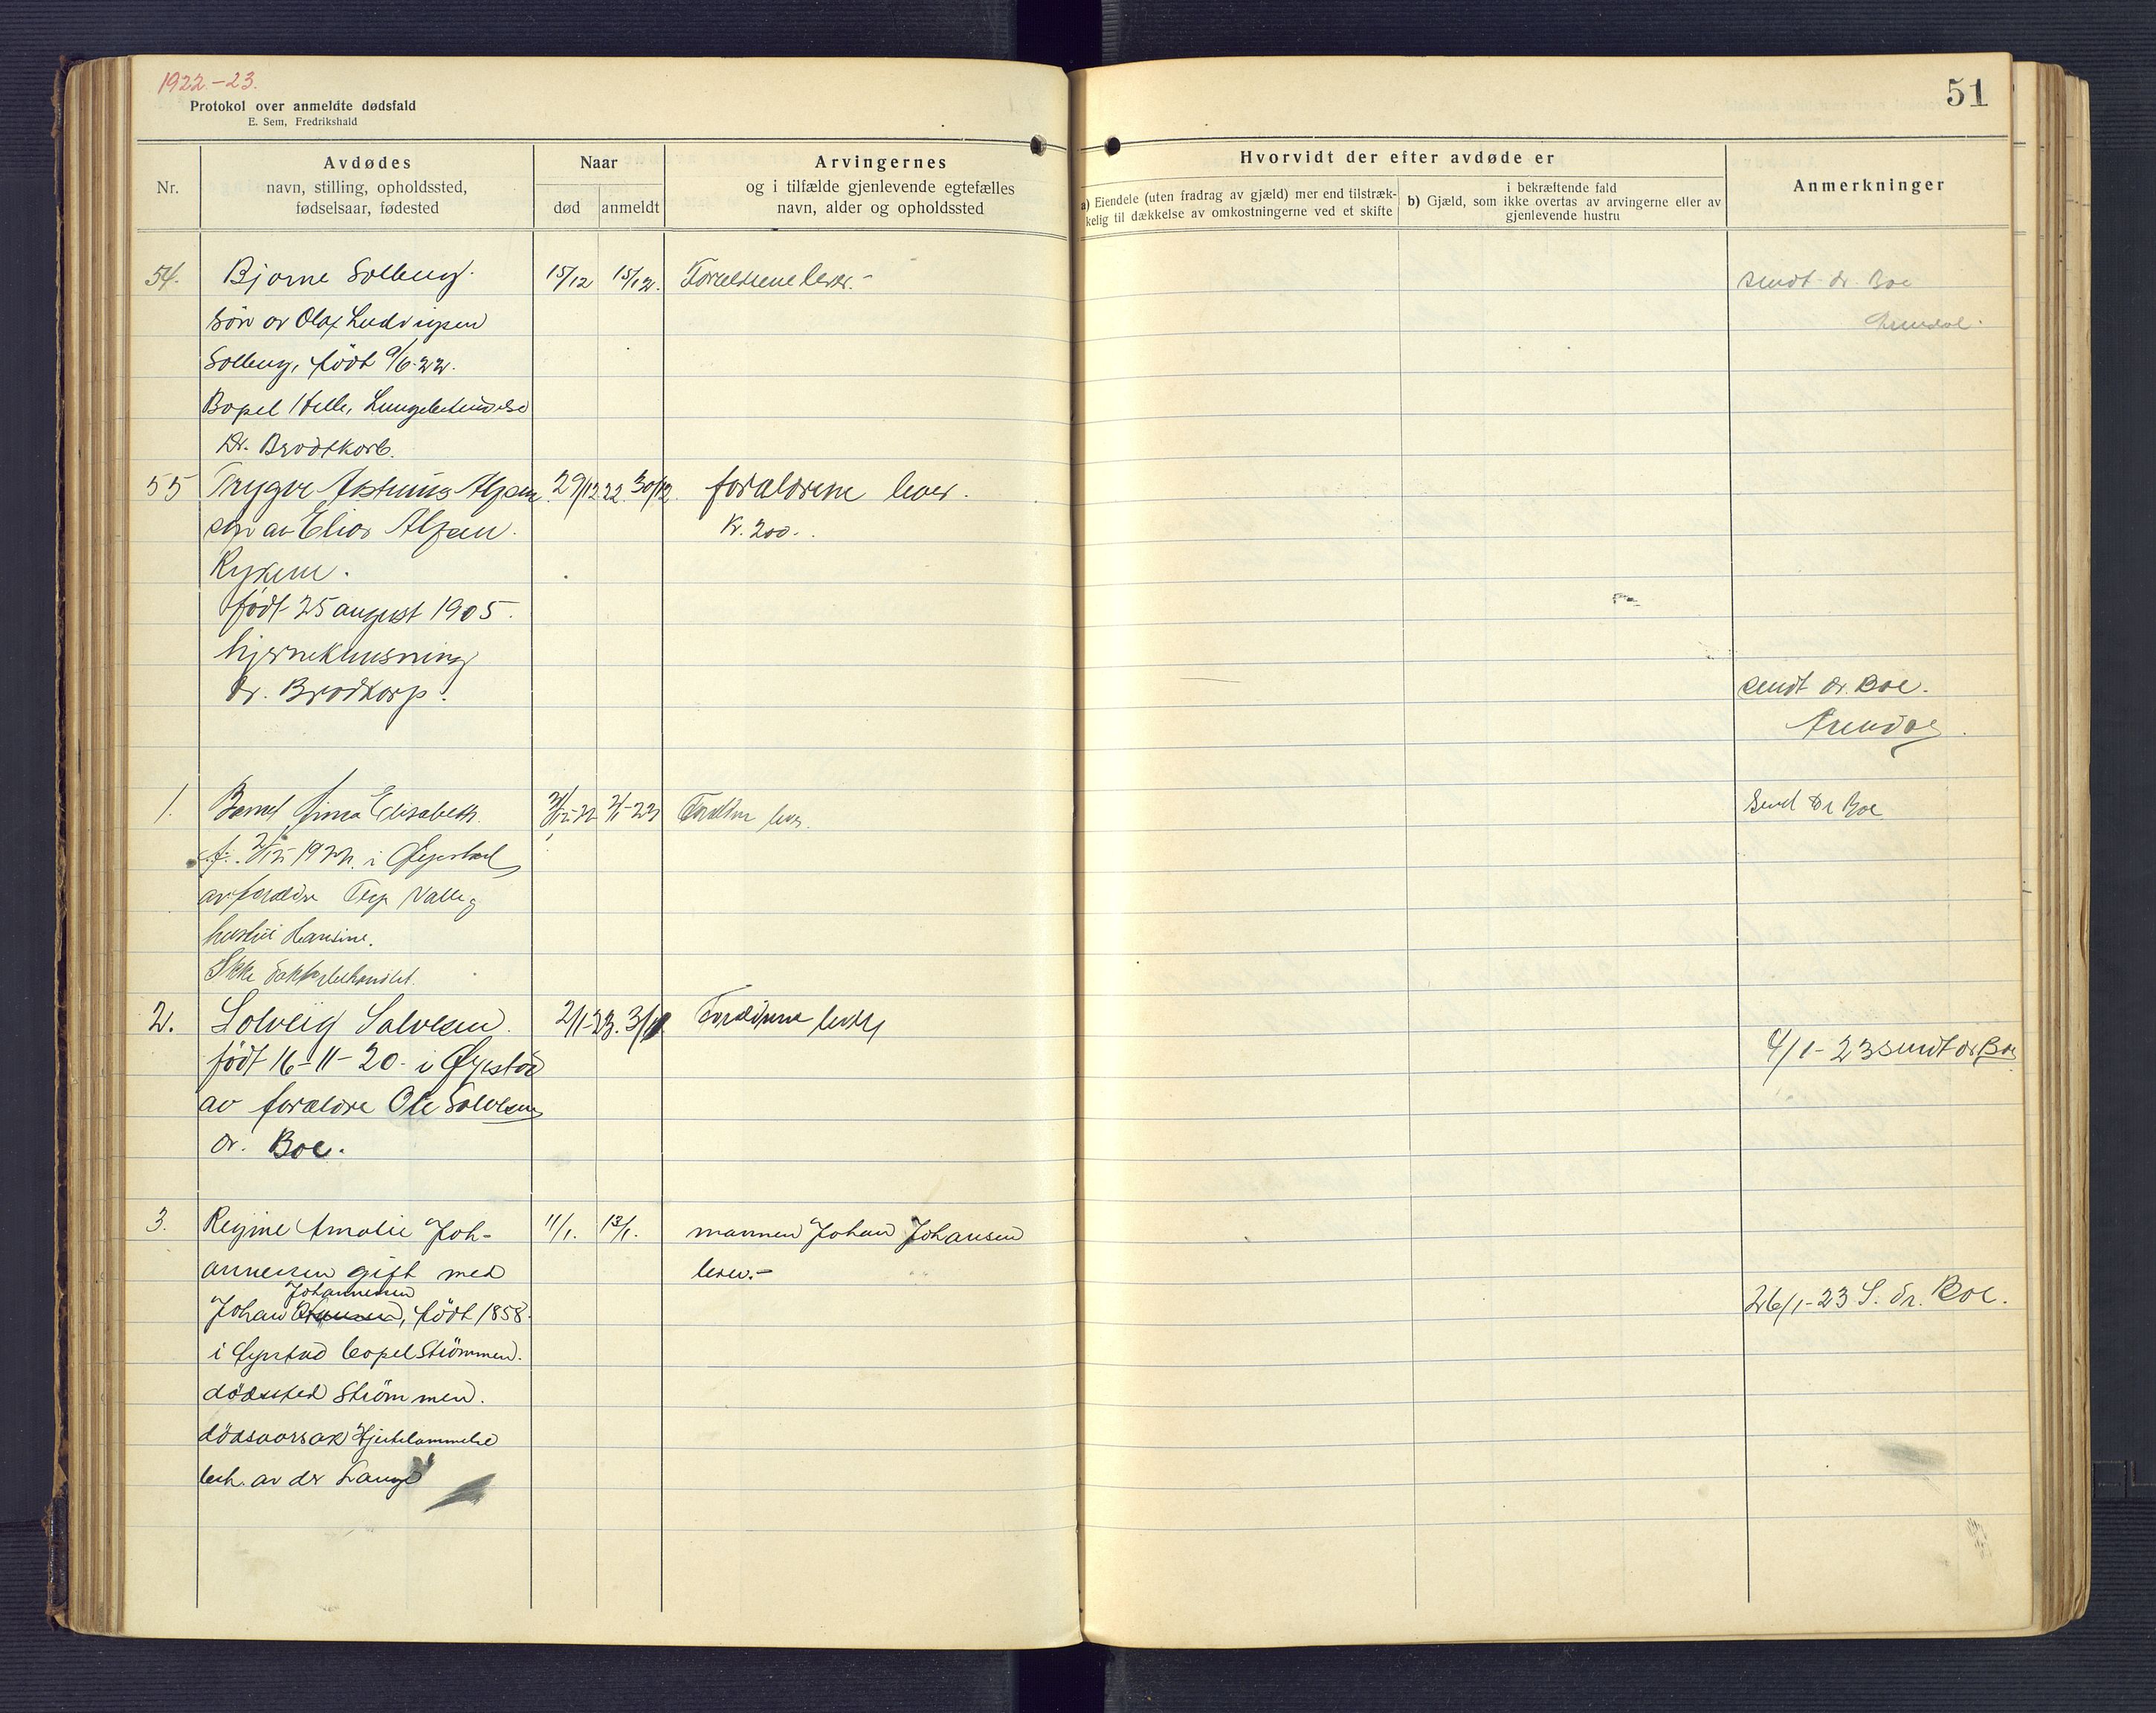 1922-23.
51
Protokol over anmeldte dødsfald
E. Sem, Fredrikshald
Nr.
Avdødes
navn, stilling, opholdssted,
fødselsaar, fødested
Naar
død
anmeldt
Arvingernes
og i tilfælde gjenlevende egtefælles
navn, alder og opholdssted
Hvorvidt der efter avdøde er
a) Eiendele (uten fradrag av gjæld) mer end tilstræk-
kelig til dækkelse av omkostningerne ved et skifte
i bekræftende fald
b) Gjæld, som ikke overtas av arvingerne eller av
gjenlevende hustru
Anmerkninger
54. Bjarne Solberg. 15/12 15/12. Forældrene lever.- sendt dr. Boe
Søn av Olaf Ludvigsen Arendal.
Solberg, født 9/6-22.
Bopel Helle, Lungebetendelse
Dr. Brodtkorb.
55 Trygve Alfsen 29/12 22 30/12. forældrene lever.
søn av Elias Alfsen. Kr. 200.
Rykene.
født 25 august 1905.
hjerneknusning
dr. Brodkorp. sendt dr. Boe.
Arendal.
1. Barnet Anna Elisabeth. 31/12-22 2/1-23 Forældre lever. Send Dr Boe
f. 1922. i Øyestad
av forældre Terje Valle og
hustru Hansine.
Ikke doktorbehandlet.
2. Solveig Salvesen. 2/1-23. 3/1. Forældrene lever
født 16-11-20- i Øyestad 4/1-23 sendt dr Boe
av forældre Ole Salvesen
dr. Boe.
3. Regine Amalie Joh- 11/1. 13/1. mannen Johan Johansen
annesen gift med lever.-
Johannesen
Johan, født 1858. 26/1-23 S. dr. Boe.
i Øyestad bopel Strömmen.
dödssted Strömmen.
dödsaarsak Hjertelammelse
beh. av dr Lange